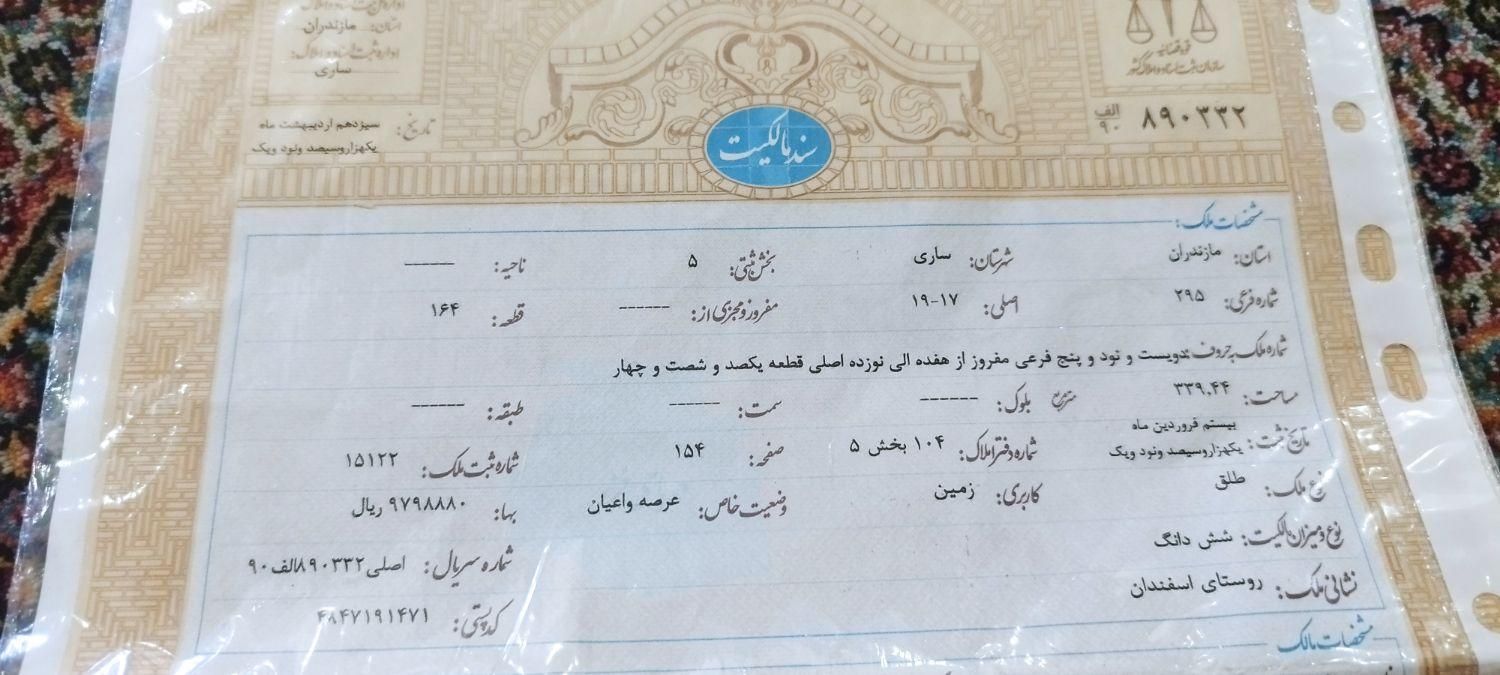 استان: مازندران
اداره ثبت اسناد و املاک:
ساری
تاریخ: سیزدهم اردیبهشت ماه
یکهزاروسیصد ونود ویک
قوه قضائیه
سازمان ثبت اسناد و املاک کشور
۸۹۰۳۳۲ الف ۹۰
سند مالکیت
مشخصات ملک:
استان: مازندران شهرستان: ساری بخش ثبتی: ۵ ناحیه: ------
شماره فرعی: ۲۹۵ اصلی: ۱۷-۱۹ مفروز و مجزی از: ------ قطعه: ۱۶۴
شماره ملک بحروف: دویست و نود و پنج فرعی مفروز از هفده الی نوزده اصلی قطعه یکصد و شصت و چهار
مساحت: ۳۳۹.۴۴ مترمربع بلوک: ------ سمت: ------ طبقه: ------
تاریخ ثبت: بیستم فروردین ماه یکهزاروسیصد ونود ویک شماره دفتر املاک: ۱۰۴ بخش ۵ صفحه: ۱۵۴ شماره ثبت ملک: ۱۵۱۲۲
نوع ملک: طلق کاربری: زمین وضعیت خاص: عرصه واعیان بها: ۹۷۹۸۸۸۰ ریال
نوع و میزان مالکیت: شش دانگ شماره سریال: اصلی ۸۹۰۳۳۲الف۹۰
نشانی ملک: روستای اسفندان کد پستی: ۴۸۴۷۱۹۱۴۷۱
مشخصات مالک